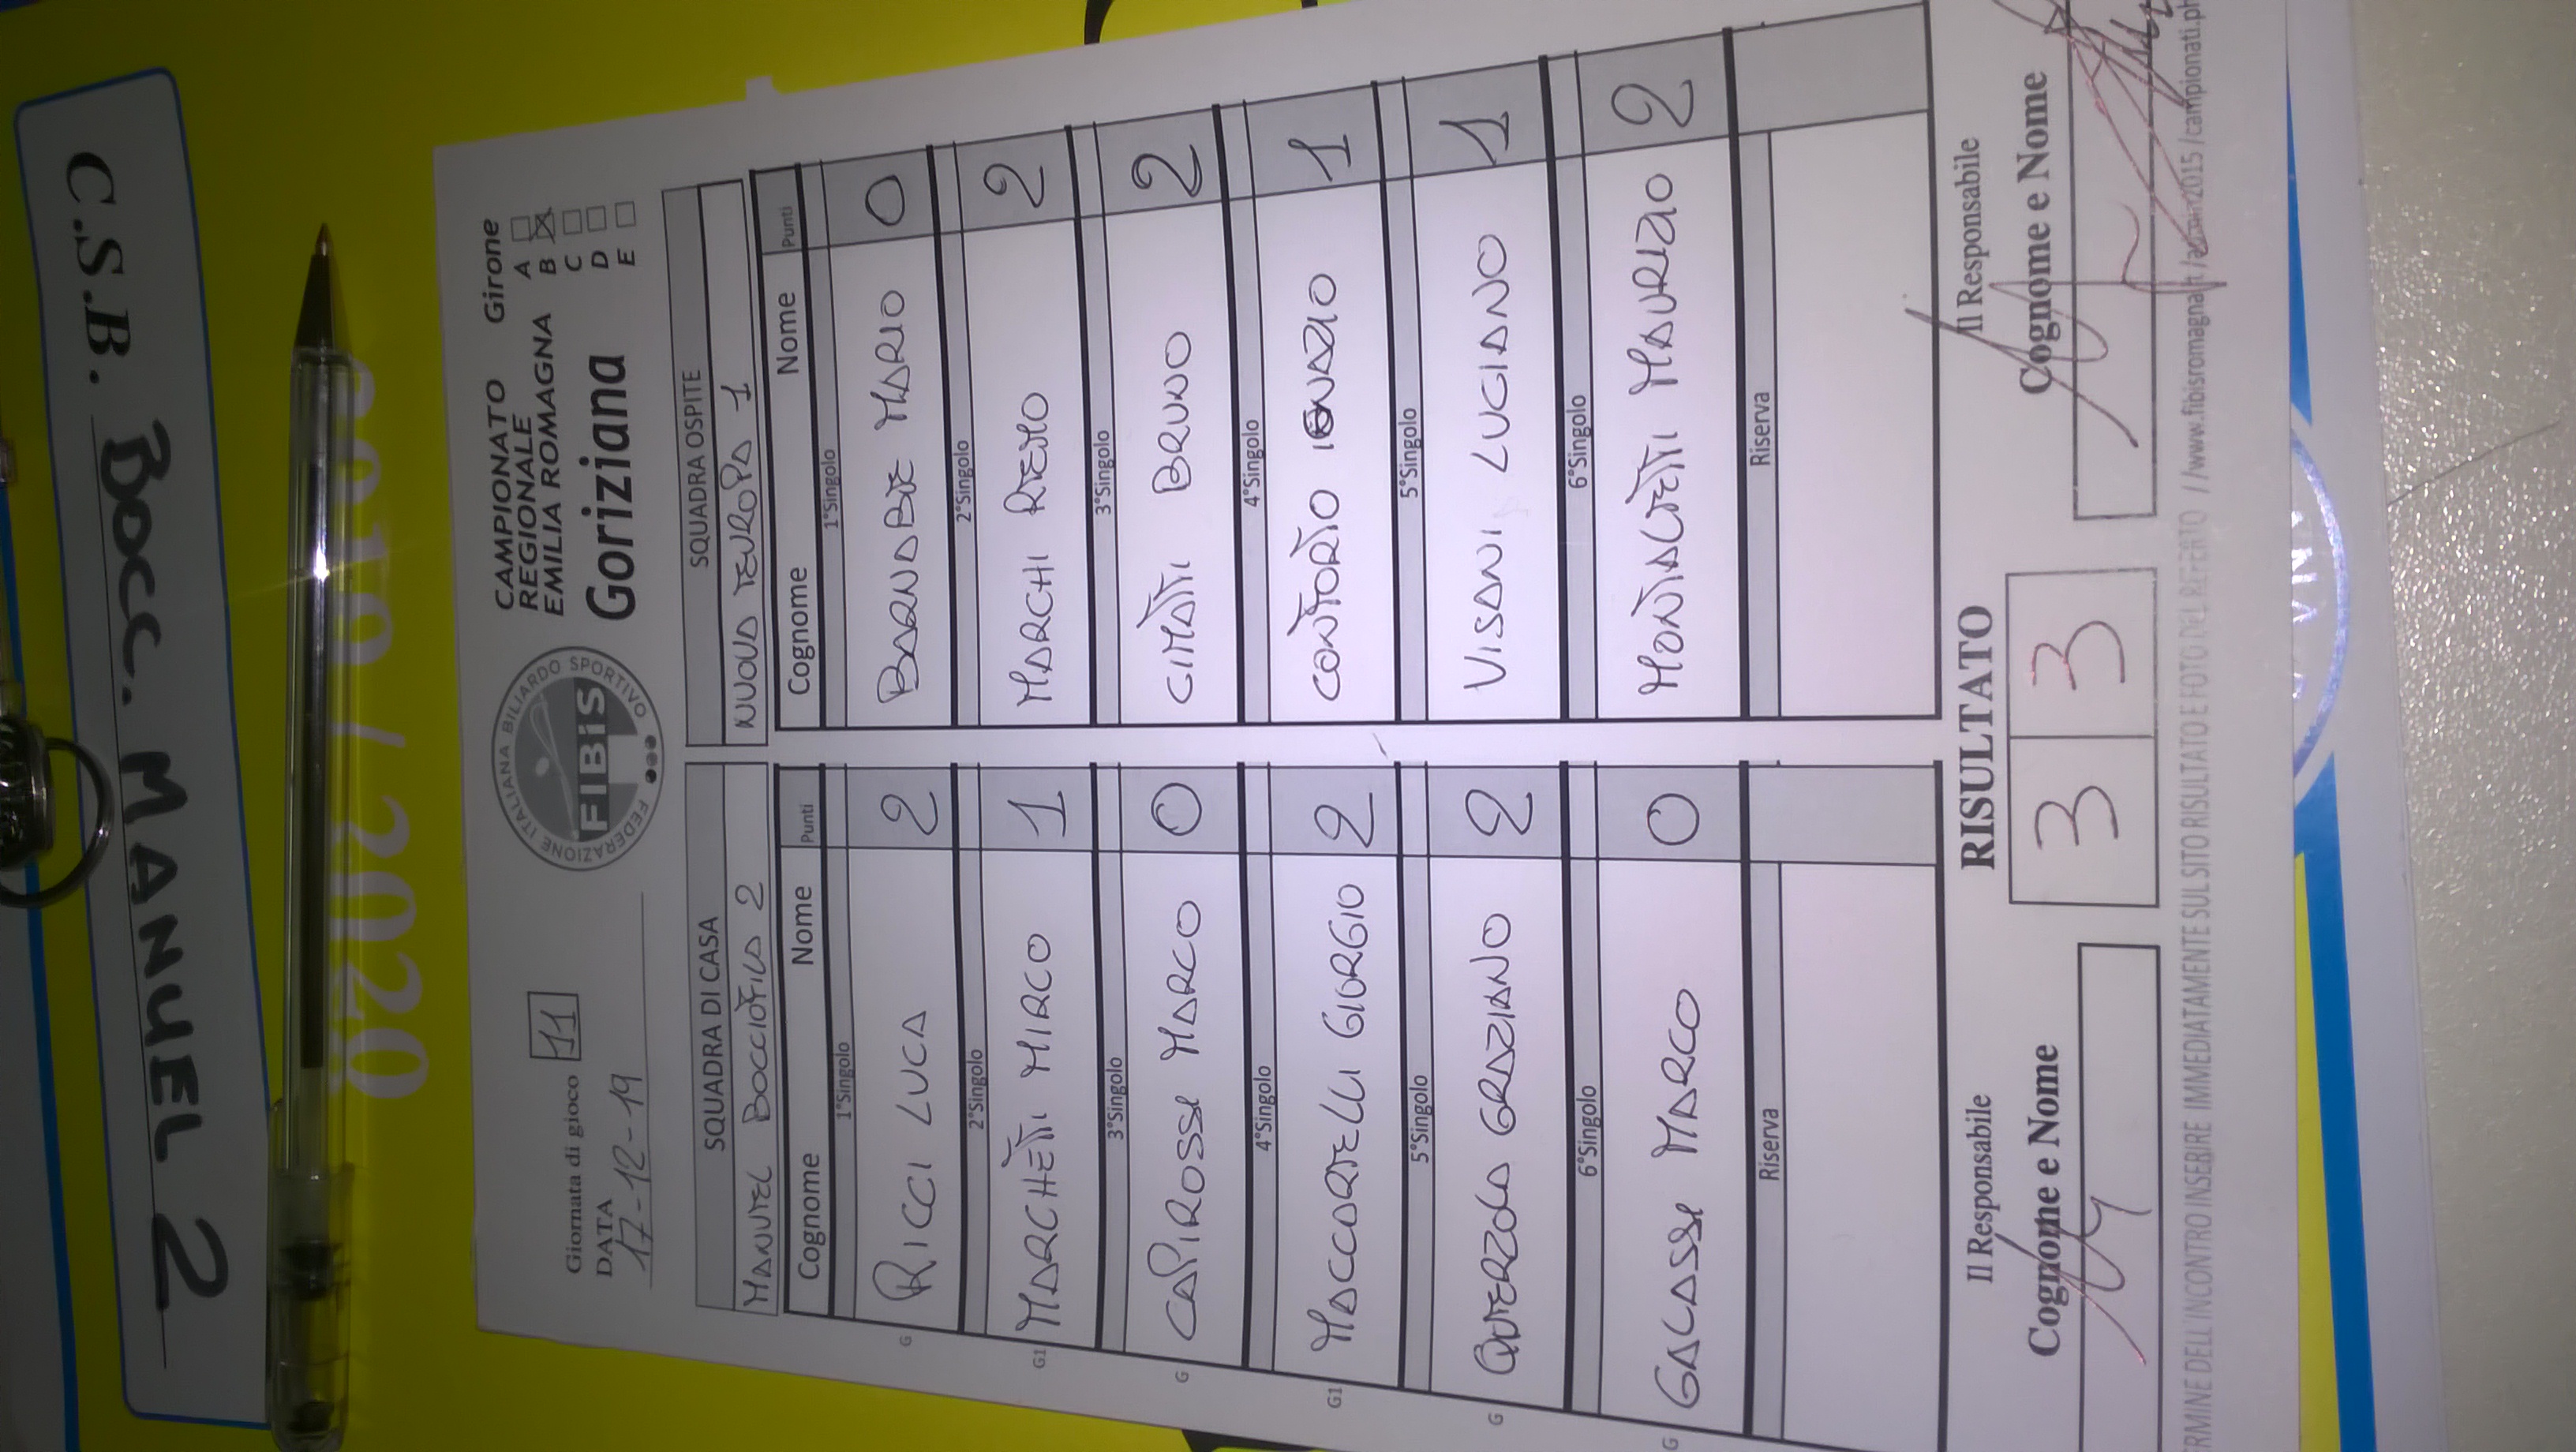 C.S.B. BOCC. MANUEL 2
2019 / 2020
Giornata di gioco 11
DATA
17-12-19
FEDERAZIONE ITALIANA BILIARDO SPORTIVO
FIBiS
CAMPIONATO
REGIONALE
EMILIA ROMAGNA
Goriziana
Girone
A
B
C
D
E
SQUADRA DI CASA
MANUEL BOCCIOFILA 2
Cognome Nome Punti
1°Singolo
G RICCI LUCA 2
2°Singolo
G1 MARCHETTI MIRCO 1
3°Singolo
G CAPIROSSI MARCO 0
4°Singolo
G1 MACCARELLI GIORGIO 2
5°Singolo
G QUERZOLA GRAZIANO 2
6°Singolo
G GALASSI MARCO 0
Riserva
SQUADRA OSPITE
NUOVA EUROPA 1
Cognome Nome Punti
1°Singolo
BARNABE MARIO 0
2°Singolo
MARCHI REMO 2
3°Singolo
CIMATTI BRUNO 2
4°Singolo
CONTORTO IGNAZIO 1
5°Singolo
VISANI LUCIANO 1
6°Singolo
MONTALETTI MAURIZIO 2
Riserva
Il Responsabile
Cognome e Nome
RISULTATO
3 3
Il Responsabile
Cognome e Nome
ERMINE DELL'INCONTRO INSERIRE IMMEDIATAMENTE SUL SITO RISULTATO E FOTO DEL REFERTO //www.fibisromagna.it/admin2015/campionati.ph